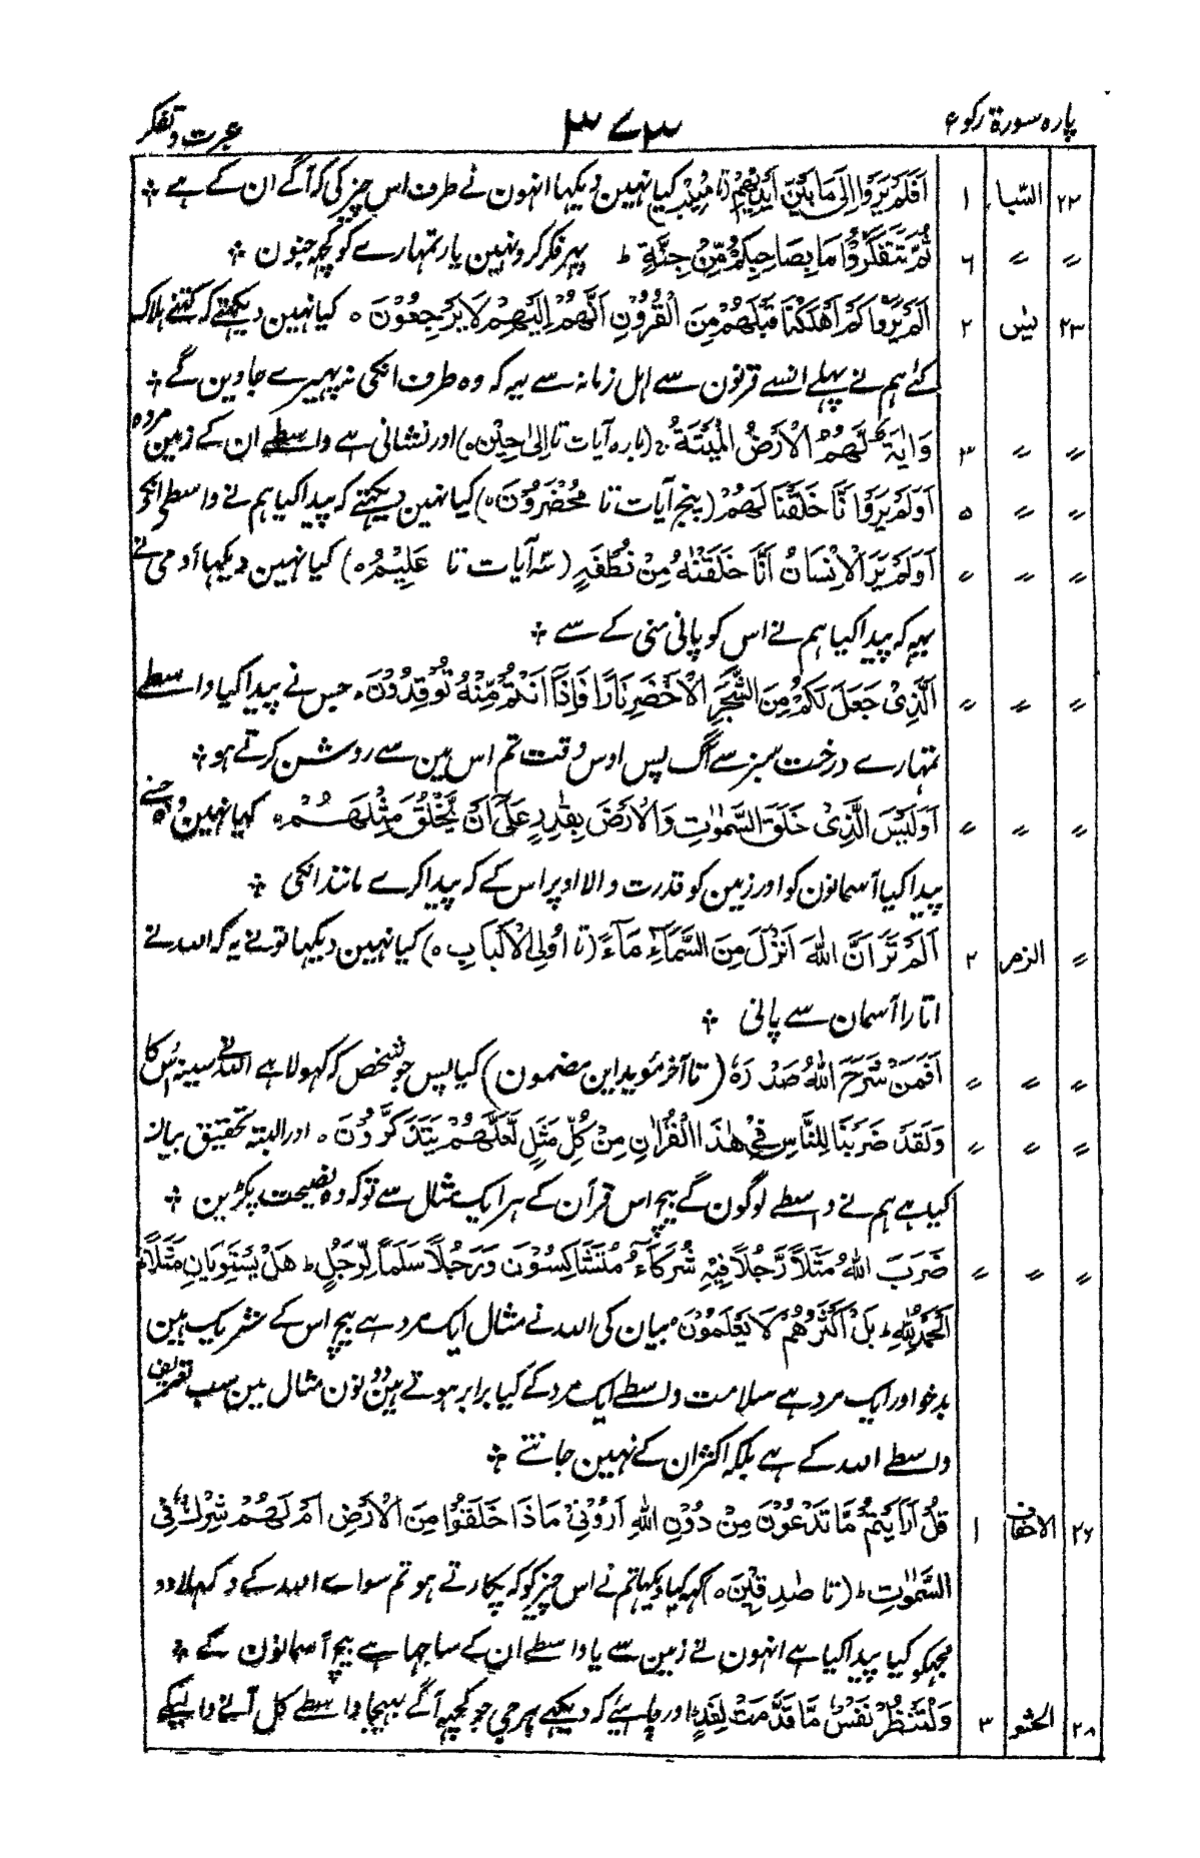 پارہ سورۃ رکوع ۳۷۳ عبرت و تفکر
۲۲ السبا ۱ اَفَلَمْ یَرَوْا اِلٰی مَا بَیْنَ اَیْدِیْهِمْ (تا مُنِیْب) کیا نہین دیکھا انہون نے طرف اس چیز کی کہ آگے ان کے ہے ⁘
〃 〃 ۶ ثُمَّ تَتَفَكَّرُوْا مَا بِصَاحِبِكُمْ مِّنْ جِنَّةٍ ط پہر فکر کرو نہین یار تمہارے کو کچہ جنون ⁘
۲۳ یٰس ۲ اَلَمْ یَرَوْا كَمْ اَهْلَكْنَا قَبْلَهُمْ مِنَ الْقُرُوْنِ اَنَّهُمْ اِلَیْهِمْ لَا یَرْجِعُوْنَ ه کیا نہین دیکہتے کہ کتنے ہلاک
کئے ہم نے پہلے انسے قرنون سے اہل زمانہ سے یہہ کہ وہ طرف انکی نہ پہیرے جاوین گے ⁘
〃 〃 ۳ وَاٰیَةٌ لَّهُمُ الْاَرْضُ الْمَیْتَةُ (بارہ آیات تا اِلٰی حِیْنٍ ه) اور نشانی ہے واسطے ان کے زمین مردہ
〃 〃 ۵ اَوَلَمْ یَرَوْا اَنَّا خَلَقْنَا لَهُمْ (پنج آیات تا مُحْضَرُوْنَ ه) کیا نہین دیکہتے کہ پیدا کیا ہم نے واسطے انکی
〃 〃 〃 اَوَلَمْ یَرَ الْاِنْسَانُ اَنَّا خَلَقْنٰهُ مِنْ نُّطْفَةٍ (سہ آیات تا عَلِیْمُ ه) کیا نہین دیکہا آدمی نے
یہہ کہ پیدا کیا ہم نے اس کو پانی منی کے سے ⁘
〃 〃 〃 اَلَّذِیْ جَعَلَ لَكُمْ مِنَ الشَّجَرِ الْاَخْضَرِ نَارًا فَاِذَا اَنْتُمْ مِّنْهُ تُوْقِدُوْنَ ه جس نے پیدا کیا واسطے
تمہارے درخت سبز سے آگ پس اوس وقت تم اس مین سے روشن کرتے ہو ⁘
〃 〃 〃 اَوَلَیْسَ الَّذِیْ خَلَقَ السَّمٰوٰتِ وَالْاَرْضَ بِقٰدِرٍ عَلٰی اَنْ یَّخْلُقَ مِثْلَهُمْ ه کیا نہین وہ جسنے
پیدا کیا آسمانون کو اور زمین کو قدرت والا اوپر اس کے کہ پیدا کرے مانند انکی ⁘
〃 الزمر ۲ اَلَمْ تَرَ اَنَّ اللّٰهَ اَنْزَلَ مِنَ السَّمَآءِ مَآءً (تا اُولِی الْاَلْبَابِ ه) کیا نہین دیکہا تونے یہ کہ اللہ نے
اتارا آسمان سے پانی ⁘
〃 〃 〃 اَفَمَنْ شَرَحَ اللّٰهُ صَدْرَهٗ (تا آخر موید این مضمون) کیا پس جو شخص کہ کہولا ہے اللہ نے سینہ اُس کا
〃 〃 〃 وَلَقَدْ ضَرَبْنَا لِلنَّاسِ فِیْ هٰذَا الْقُرْاٰنِ مِنْ كُلِّ مَثَلٍ لَّعَلَّهُمْ یَتَذَكَّرُوْنَ ه اور البتہ تحقیق بیان
کیا ہے ہم نے واسطے لوگون کے بیچ اس قرآن کے ہر ایک مثال سے تو کہ وہ نصیحت پکڑین ⁘
〃 〃 〃 ضَرَبَ اللّٰهُ مَثَلًا رَّجُلًا فِیْهِ شُرَكَآءُ مُتَشَاكِسُوْنَ وَرَجُلًا سَلَمًا لِّرَجُلٍ ط هَلْ یَسْتَوِیَانِ مَثَلًا ط
اَلْحَمْدُ لِلّٰهِ ط بَلْ اَكْثَرُهُمْ لَا یَعْلَمُوْنَ ه بیان کی اللہ نے مثال ایک مرد ہے بیچ اس کے شریک ہین
بدخو اور ایک مرد ہے سلامت واسطے ایک مرد کے کیا برابر ہوتے ہین دونون مثال مین سب تعریف
واسطے اللہ کے ہے بلکہ اکثر ان کے نہین جانتے ⁘
۲۶ الاحقاف ۱ قُلْ اَرَاَیْتُمْ مَّا تَدْعُوْنَ مِنْ دُوْنِ اللّٰهِ اَرُوْنِیْ مَاذَا خَلَقُوْا مِنَ الْاَرْضِ اَمْ لَهُمْ شِرْكٌ فِی
السَّمٰوٰتِ ط (تا صٰدِقِیْنَ ه) کہہ کیا دیکہا تم نے اس چیز کو کہ پکارتے ہو تم سوائے اللہ کے دکہلا دو
مجہکو کیا پیدا کیا ہے انہون نے زمین سے یا واسطے ان کے ساجہا ہے بیچ آسمانون کے ⁘
۲۸ الحشر ۳ وَلْتَنْظُرْ نَفْسٌ مَّا قَدَّمَتْ لِغَدٍ اور چاہیئے کہ دیکہے ہر جی جو کچہہ آگے بہیجا واسطے کل آنے والیکے